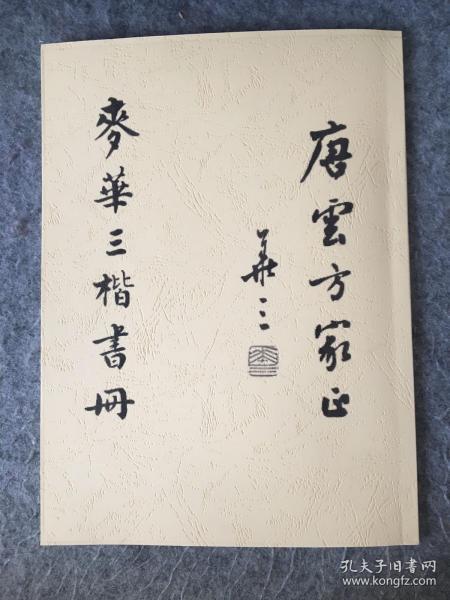 唐雲方家正
華三
麥華三楷書冊
孔夫子旧书网
www.kongfz.com